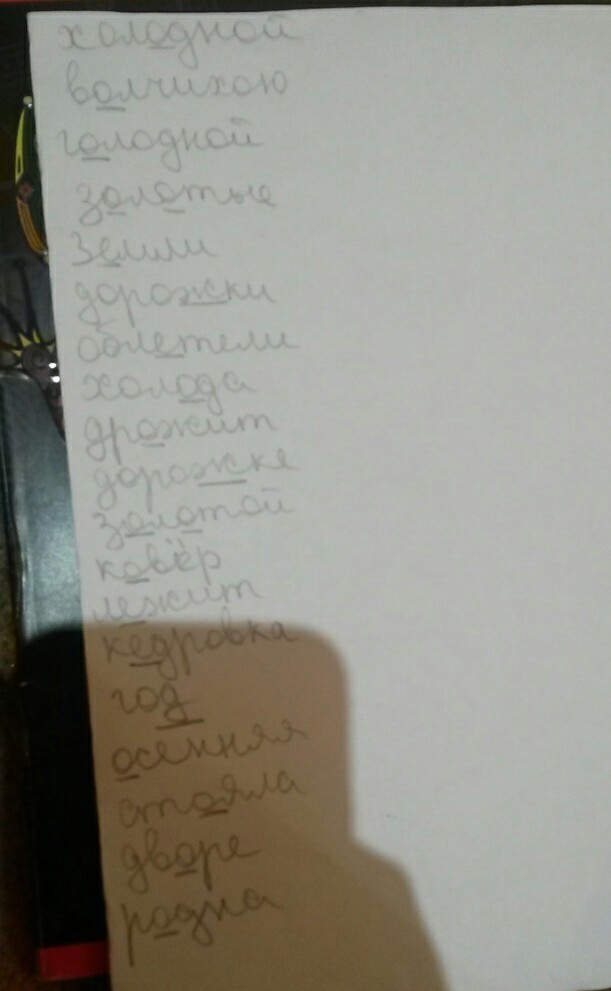 холодной
волчихою
голодной
золотые
Земли
дорожки
облетели
холода
дрожит
дорожке
золотой
ковёр
лежит
кедровка
год
осенняя
стояла
дворе
родна